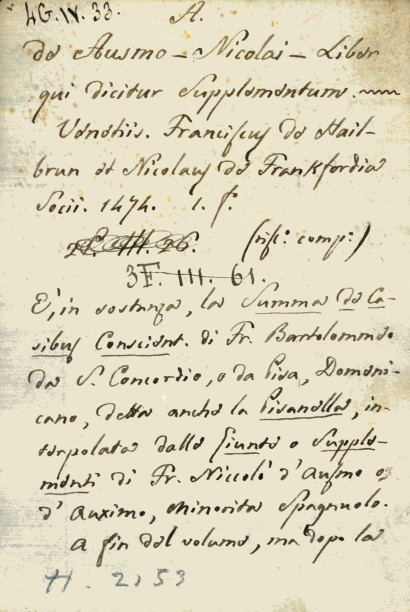 4G. IV. 33. A.
de Ausmo – Nicolai – Liber
qui dicitur Supplementum.
Venetiis. Franciscus de Hail-
brun et Nicolaus de Frankfordia
Socii. 1474. 1. f.
2E. III. 26. (risc. comp.)
3F. III. 61.
È, in sostanza, la Summa de Ca-
sibus Conscient. di Fr. Bartolommeo
da S. Concordio, o da Pisa, Domeni-
cano, detta anche la Pisanella, in-
terpolata dalle Giunte o Supple-
menti di Fr. Niccolò d'Ausmo o
d'Auximo, Minorita Spagnuolo.
A fin del volume, ma dopo la
H. 2153